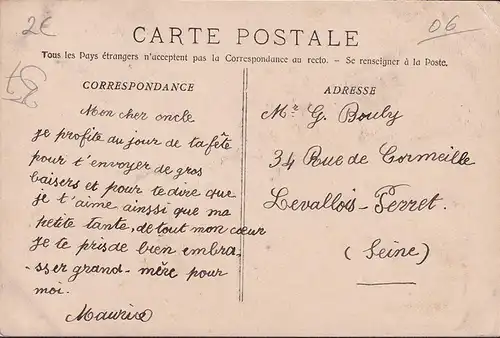 2€
06
CARTE POSTALE
Tous les Pays étrangers n'acceptent pas la Correspondance au recto. - Se renseigner à la Poste.
CORRESPONDANCE
Mon cher oncle
je profite du jour de ta fête
pour t'envoyer de gros
baisers et pour te dire que
je t'aime ainssi que ma
petite tante, de tout mon cœur
Je te pris de bien embra-
-sser grand-mère pour
moi.
Maurice
ADRESSE
Mr G. Bouly
34 Rue de Cormeille
Levallois-Perret.
(Seine)